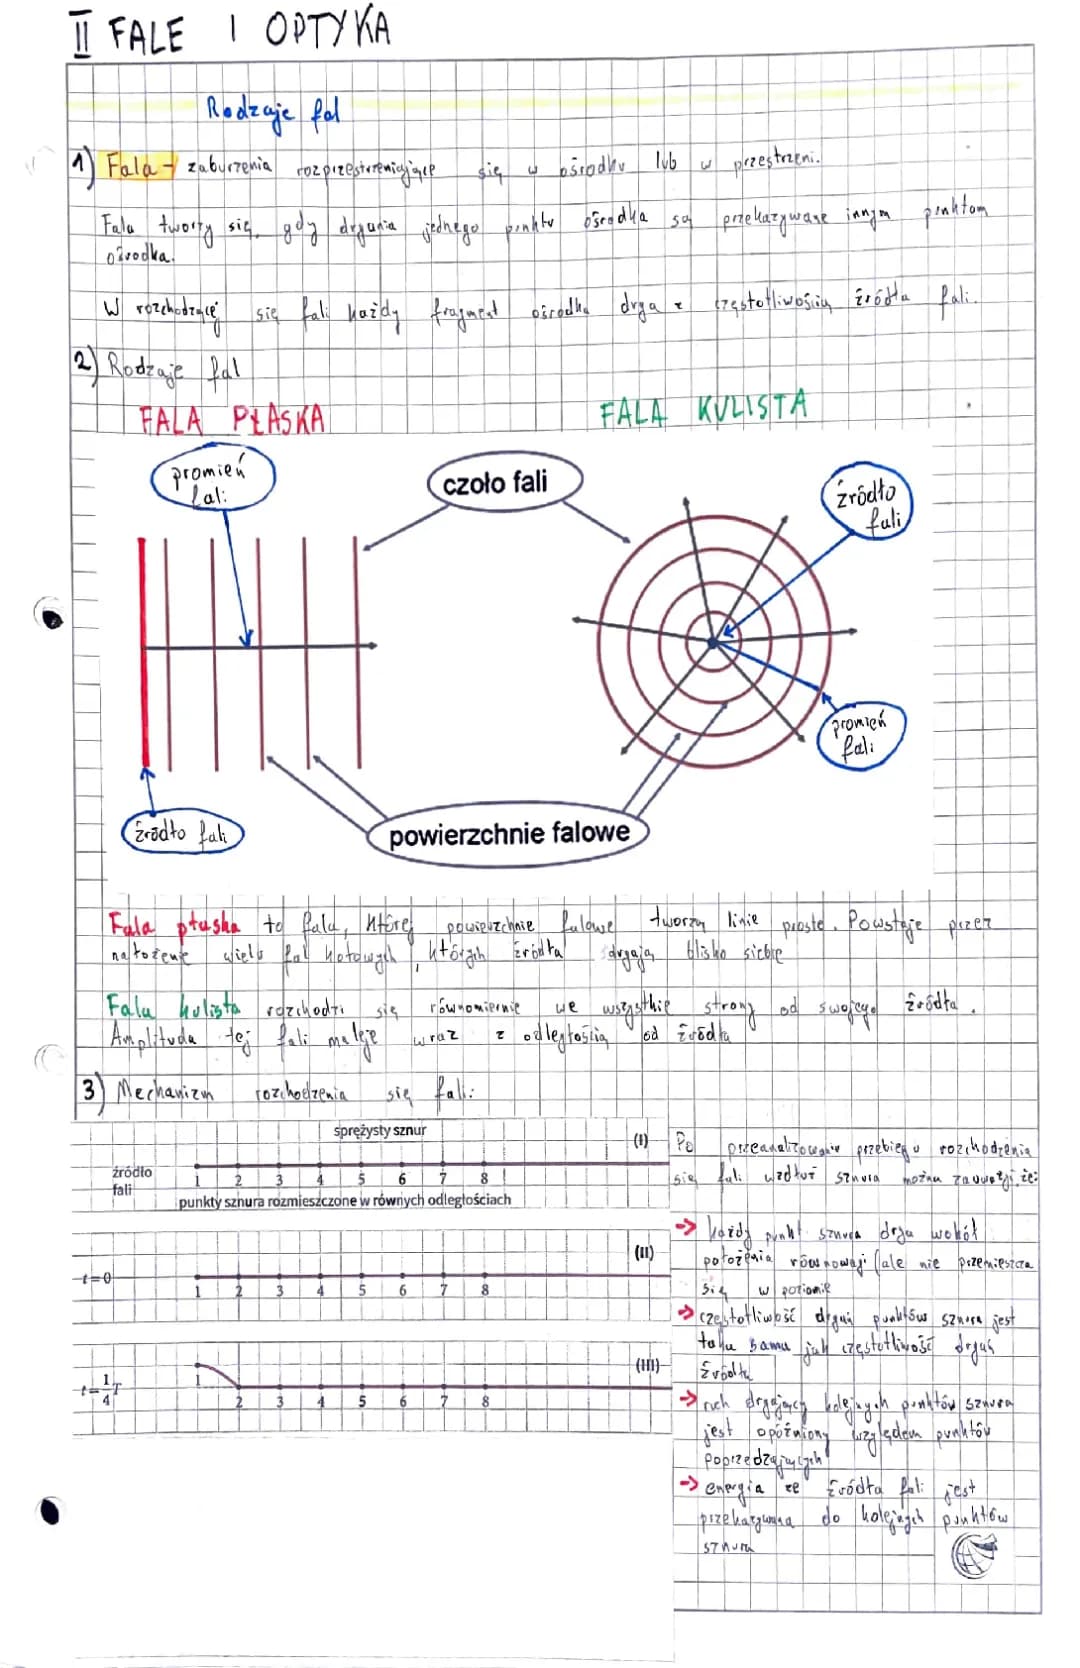 II FALE I OPTYKA
Rodzaje fal
1) Fala - zaburzenia rozprzestrzeniające się w ośrodku lub w przestrzeni.
Fala tworzy się, gdy drgania jednego punktu ośrodka są przekazywane innym punktom
ośrodka.
W rozchodzącej się fali każdy fragment ośrodka drga z częstotliwością źródła fali.
2) Rodzaje fal
FALA PŁASKA FALA KULISTA
promień
fali
czoło fali
źródło
fali
promień
fali
źródło fali
powierzchnie falowe
Fala płaska to fala, której powierzchnie falowe tworzą linie proste. Powstaje przez
nałożenie wielu fal kołowych, których źródła drgają blisko siebie
Fala kulista rozchodzi się równomiernie we wszystkie strony od swojego źródła.
Amplituda tej fali maleje wraz z odległością od źródła
3) Mechanizm rozchodzenia się fali:
sprężysty sznur (I)
źródło
fali
1 2 3 4 5 6 7 8
punkty sznura rozmieszczone w równych odległościach
(II)
t=0
1 2 3 4 5 6 7 8
(III)
t=1/4T
1 2 3 4 5 6 7 8
Po przeanalizowaniu przebiegu rozchodzenia
się fali wzdłuż sznura można zauważyć, że:
→ każdy punkt sznura drga wokół
położenia równowagi (ale nie przemieszcza
się w poziomie
→ częstotliwość drgań punktów sznura jest
taka sama jak częstotliwość drgań
źródła
→ ruch drgający kolejnych punktów sznura
jest opóźniony względem punktów
poprzedzających
→ energia ze źródła fali jest
przekazywana do kolejnych punktów
sznura